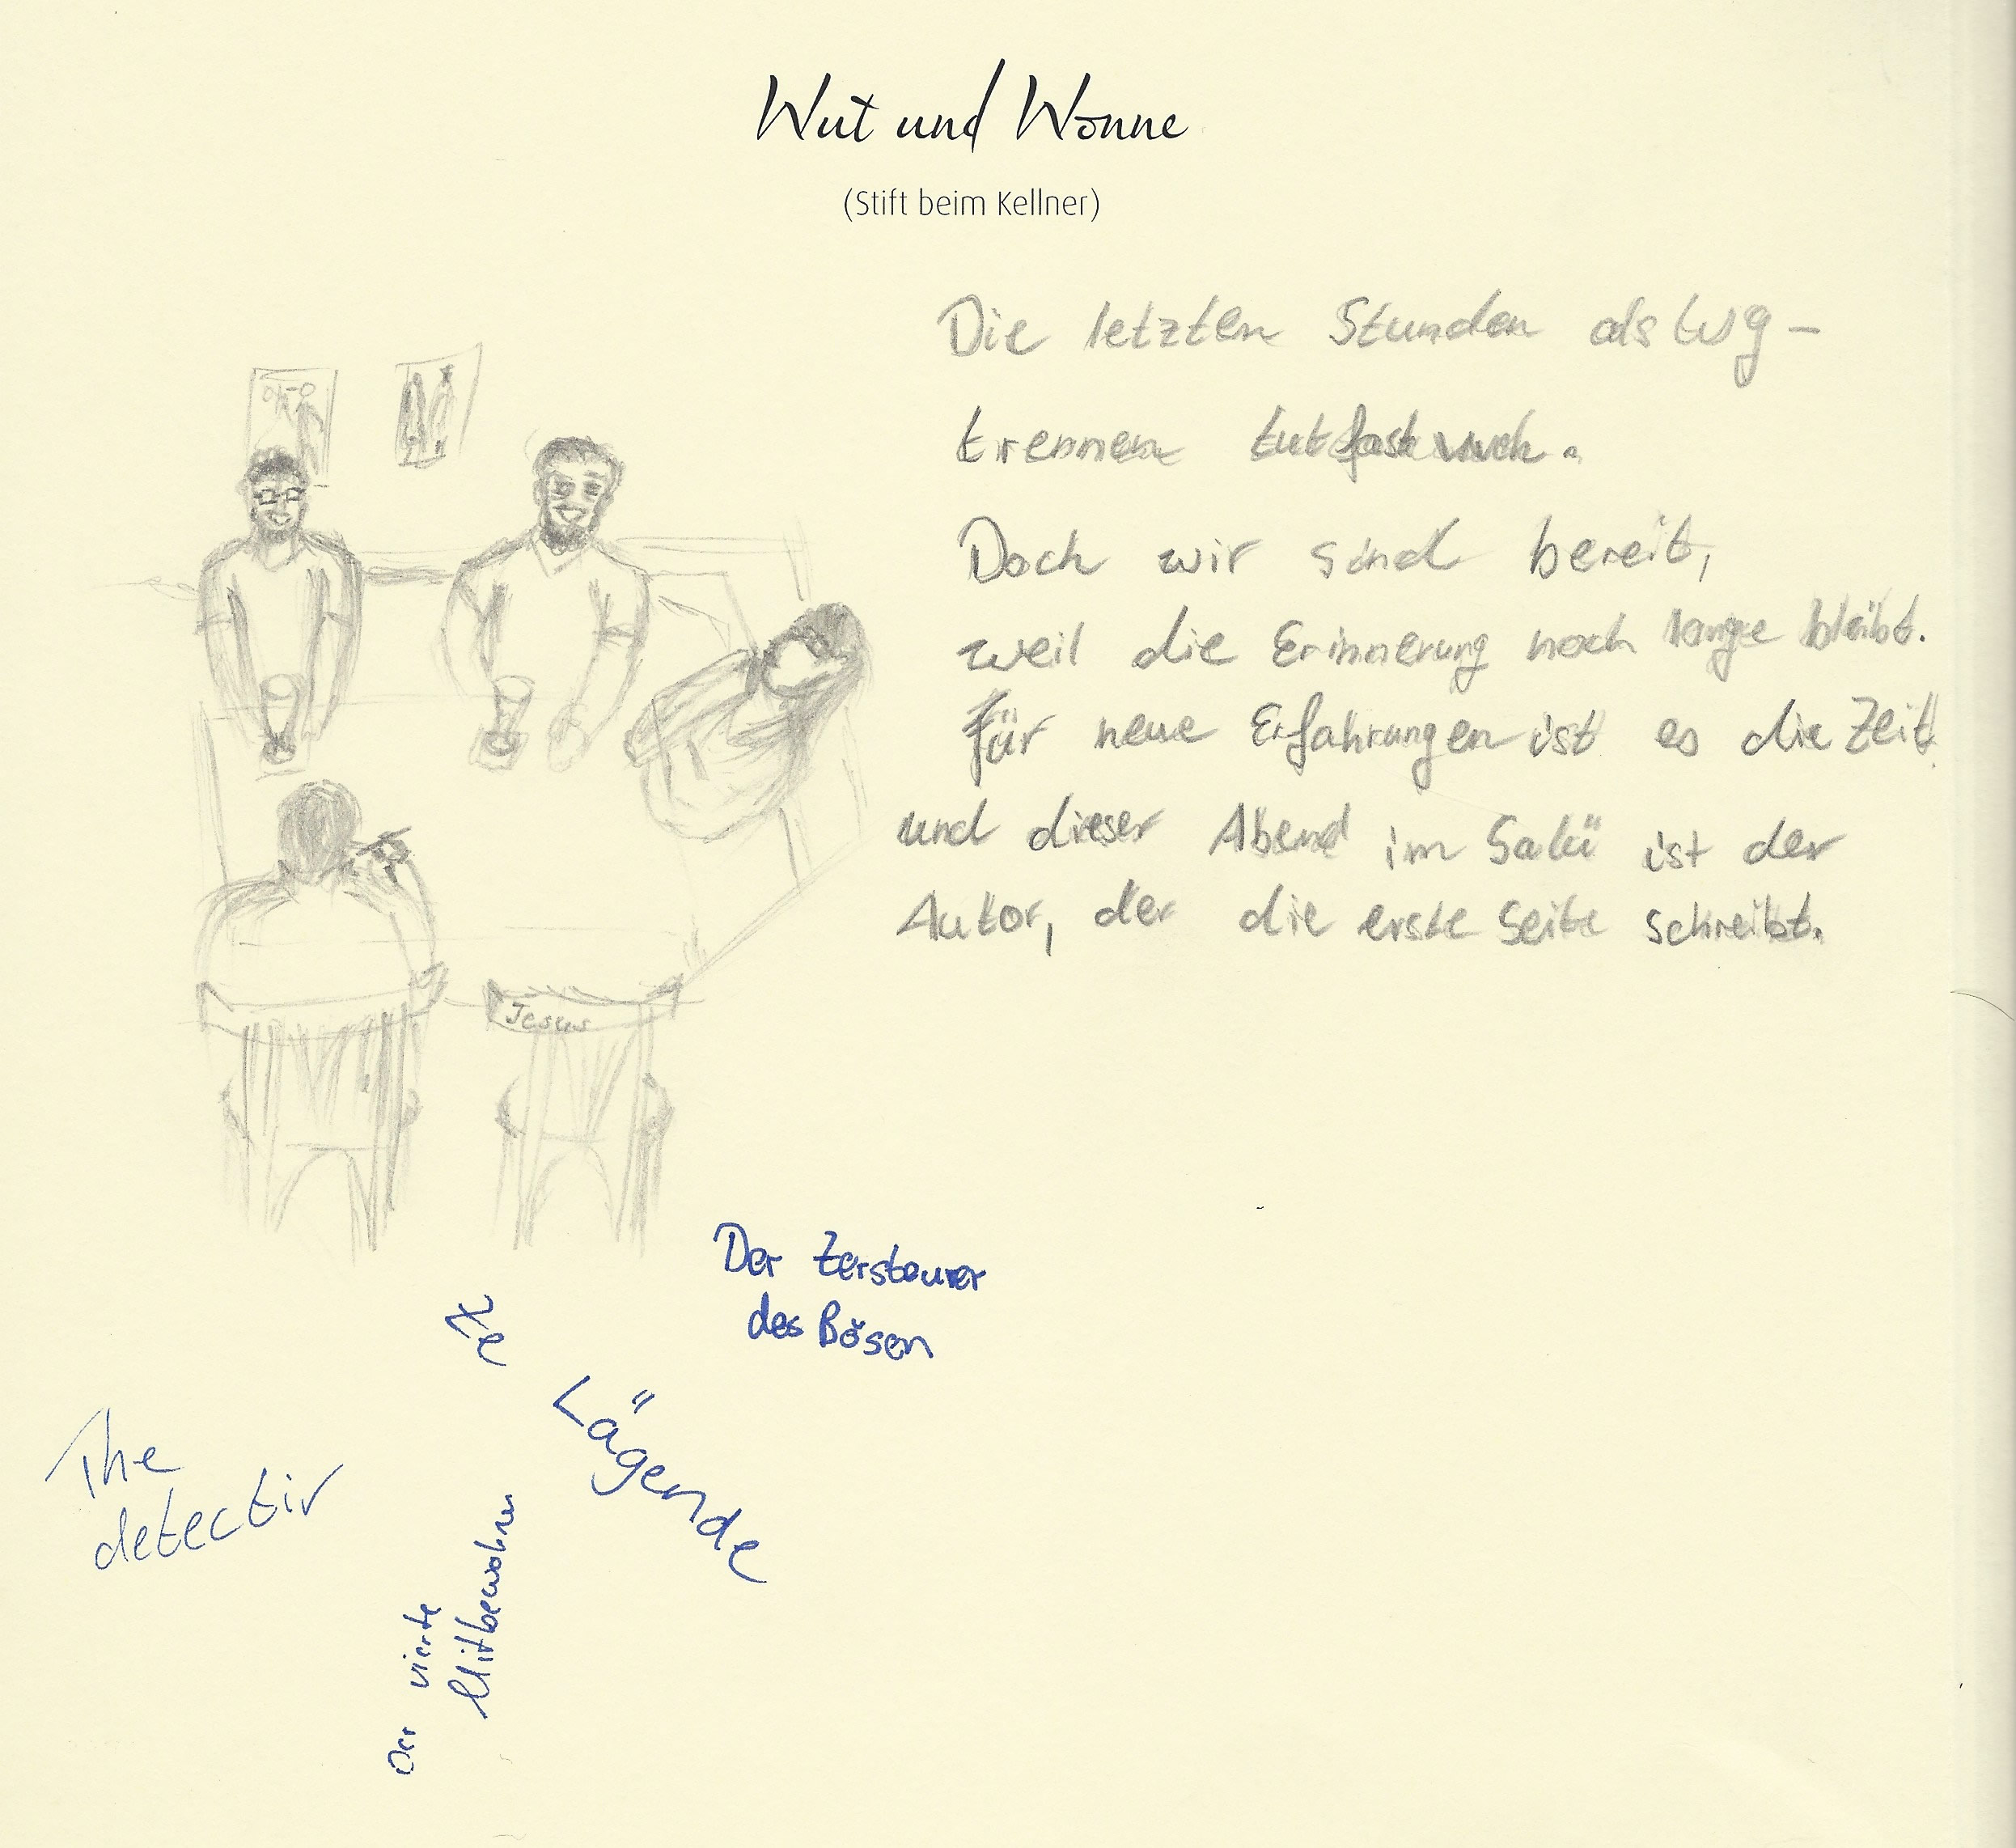 Wut und Wonne
(Stift beim Kellner)
Die letzten Stunden als Wg -
trennen tut fast weh.
Doch wir sind bereit,
weil die Erinnerung noch lange bleibt.
Für neue Erfahrungen ist es die Zeit
und dieser Abend im Salü ist der
Autor, der die erste Seite schreibt.
Jesus
Der Zersteurer
des Bösen
Lägende
The
detectiv
Der vierte
Mitbewohner